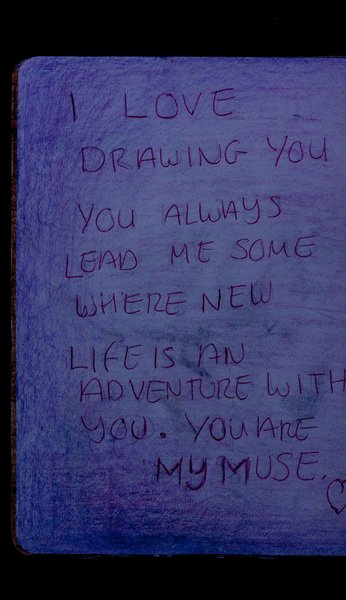 I LOVE
DRAWING YOU
YOU ALWAYS
LEAD ME SOME
WHERE NEW
LIFE IS AN
ADVENTURE WITH
YOU. YOU ARE
MY MUSE.